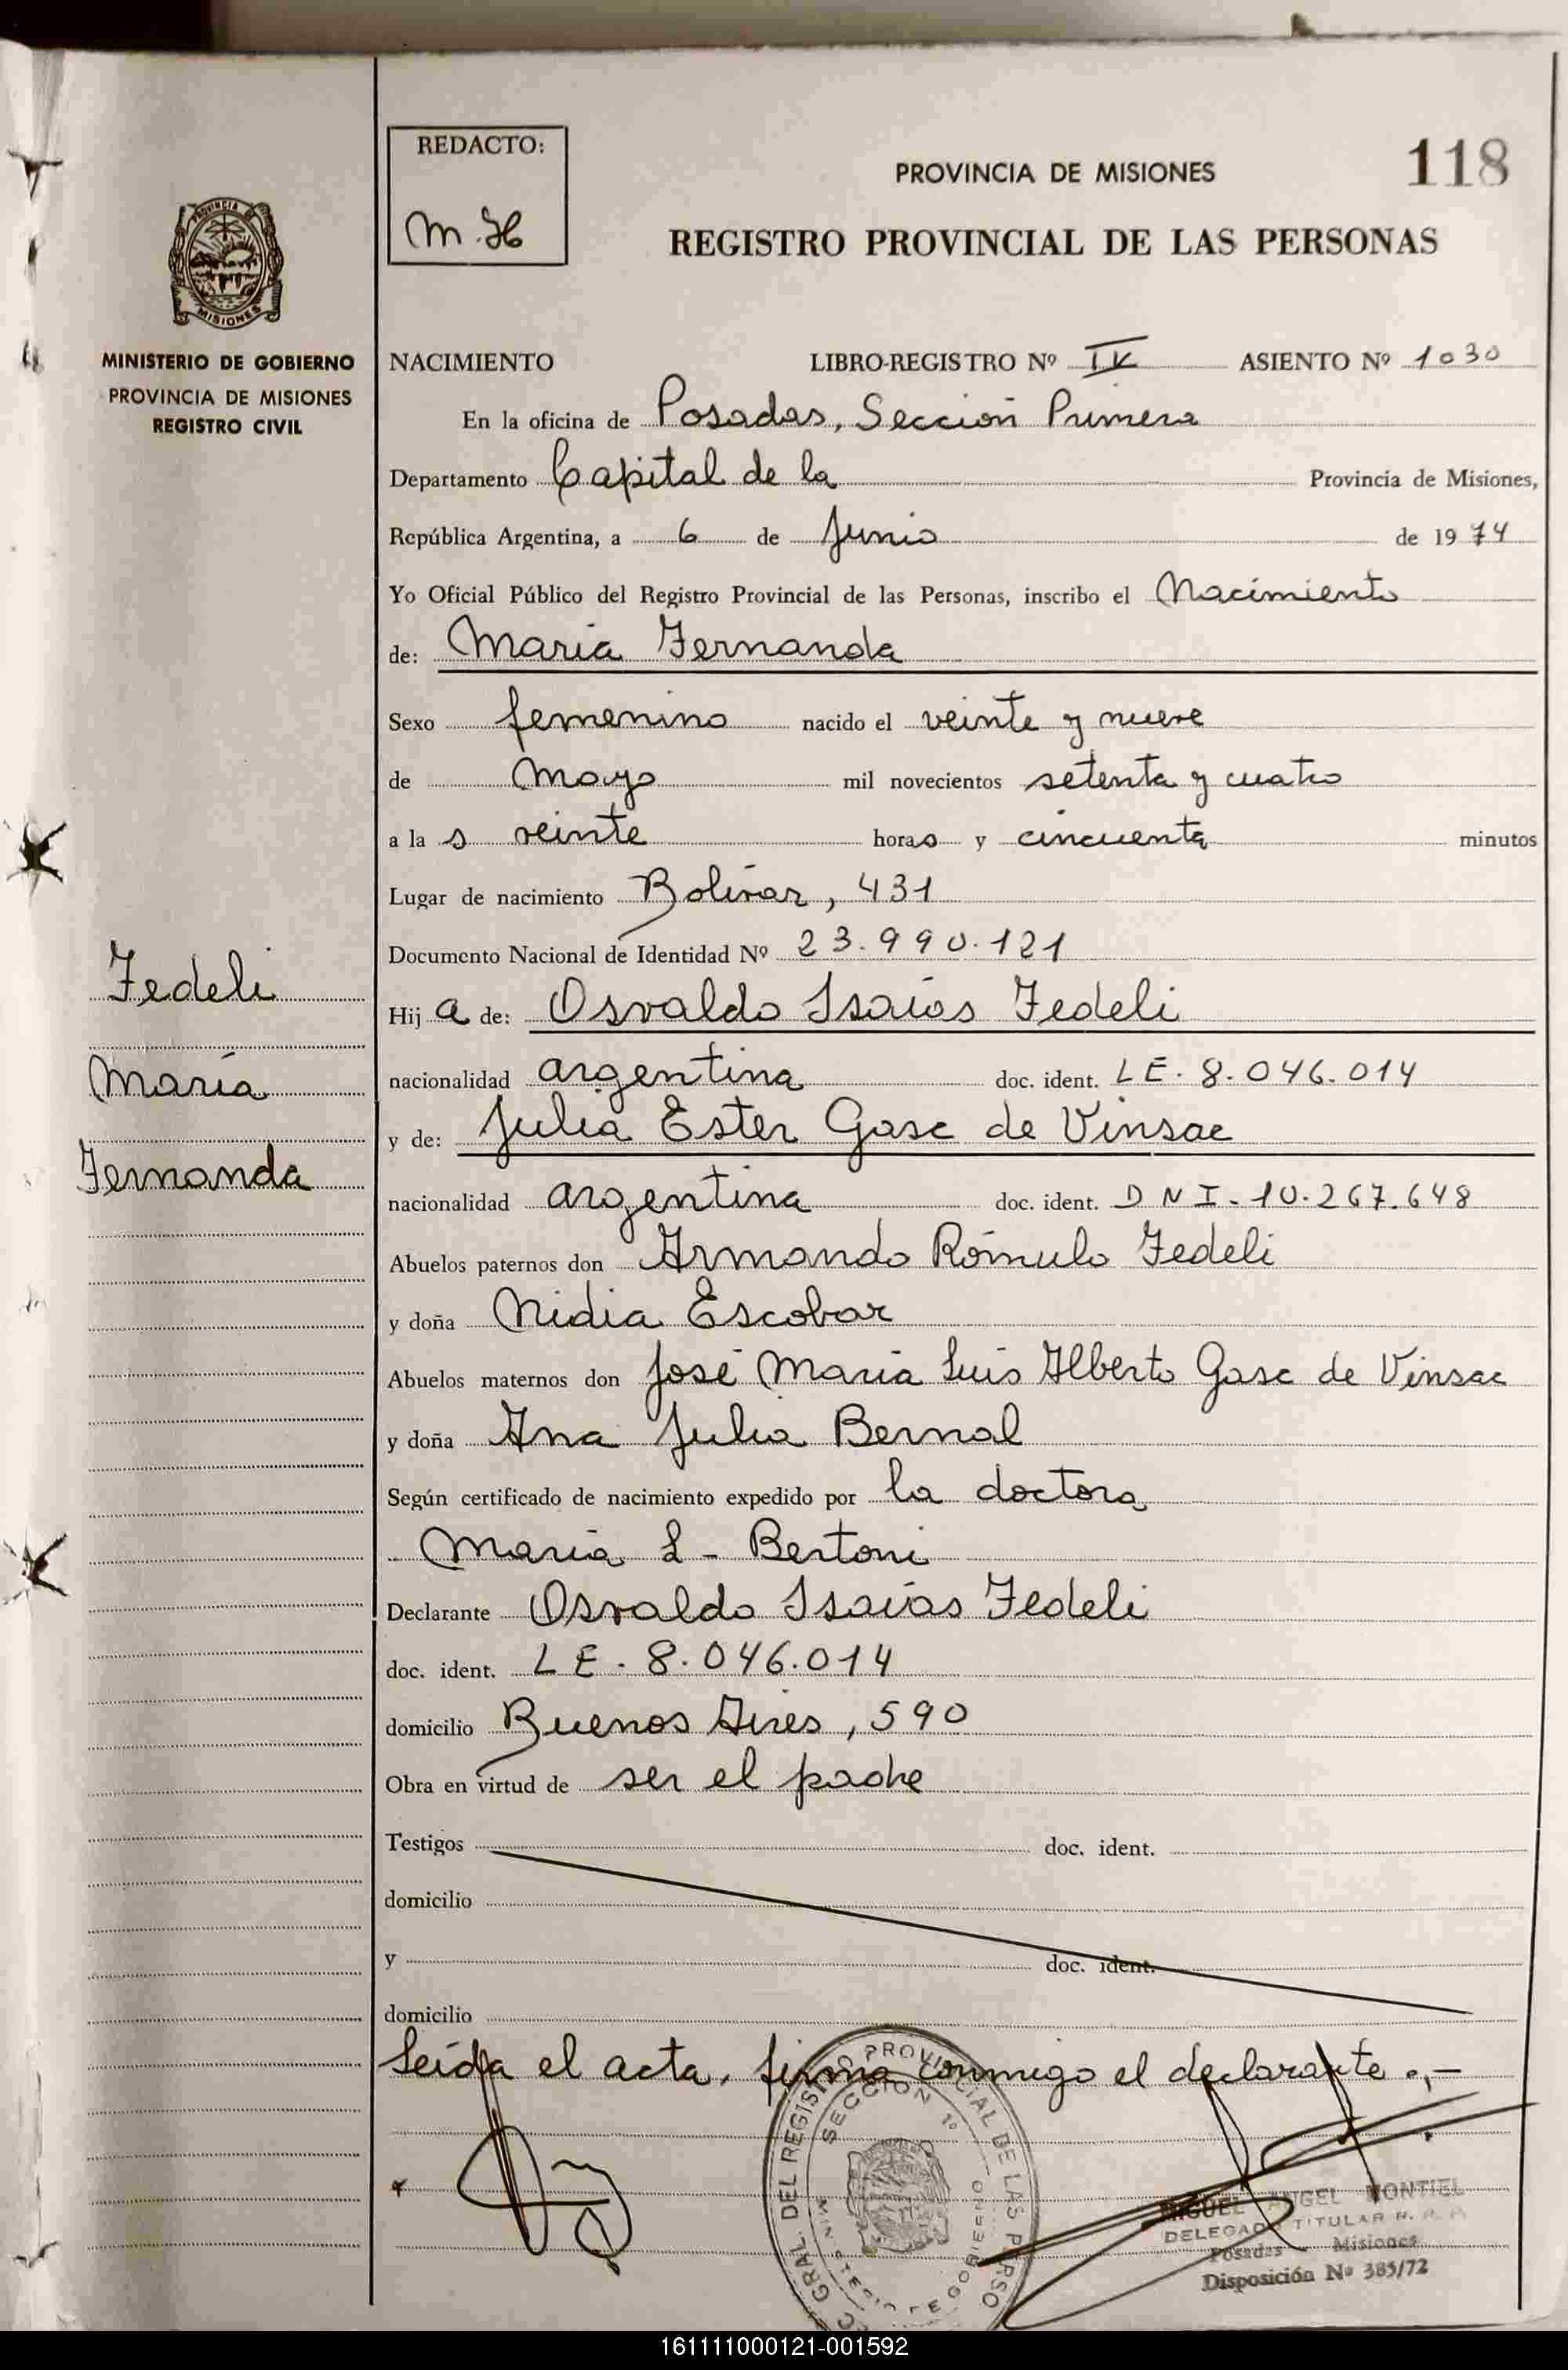 REDACTO:
M.H
PROVINCIA DE MISIONES
118
REGISTRO PROVINCIAL DE LAS PERSONAS
PROVINCIA DE
MISIONES
MINISTERIO DE GOBIERNO
PROVINCIA DE MISIONES
REGISTRO CIVIL
NACIMIENTO LIBRO-REGISTRO Nº IV ASIENTO Nº 1030
En la oficina de Posadas, Sección Primera
Departamento Capital de la Provincia de Misiones,
República Argentina, a 6 de Junio de 1974
Yo Oficial Público del Registro Provincial de las Personas, inscribo el Nacimiento
de: María Fernanda
Sexo femenino nacido el veinte y nueve
de Mayo mil novecientos setenta y cuatro
a la s veinte horas y cincuenta minutos
Lugar de nacimiento Bolívar, 431
Documento Nacional de Identidad Nº 23.990.121
Fedeli
María
Fernanda
Hij a de: Osvaldo Isaías Fedeli
nacionalidad argentina doc. ident. LE. 8.046.014
y de: Julia Ester Gasc de Vinsac
nacionalidad argentina doc. ident. DNI-10.267.648
Abuelos paternos don Armando Rómulo Fedeli
y doña Nidia Escobar
Abuelos maternos don José María Luis Alberto Gasc de Vinsac
y doña Ana Julia Bernal
Según certificado de nacimiento expedido por la doctora
María L - Bertoni
Declarante Osvaldo Isaías Fedeli
doc. ident. LE. 8.046.014
domicilio Buenos Aires, 590
Obra en virtud de ser el padre
Testigos doc. ident.
domicilio
y doc. ident.
domicilio
Leída el acta, firma conmigo el declarante.,-
GRAL. DEL REGISTRO PROVINCIAL DE LAS PERSO
SECCION 1º
MINISTERIO DE GOBIERNO
MIGUEL ANGEL MONTIEL
DELEGADO TITULAR R. P. P.
Posadas - Misiones
Disposición Nº 385/72
161111000121-001592